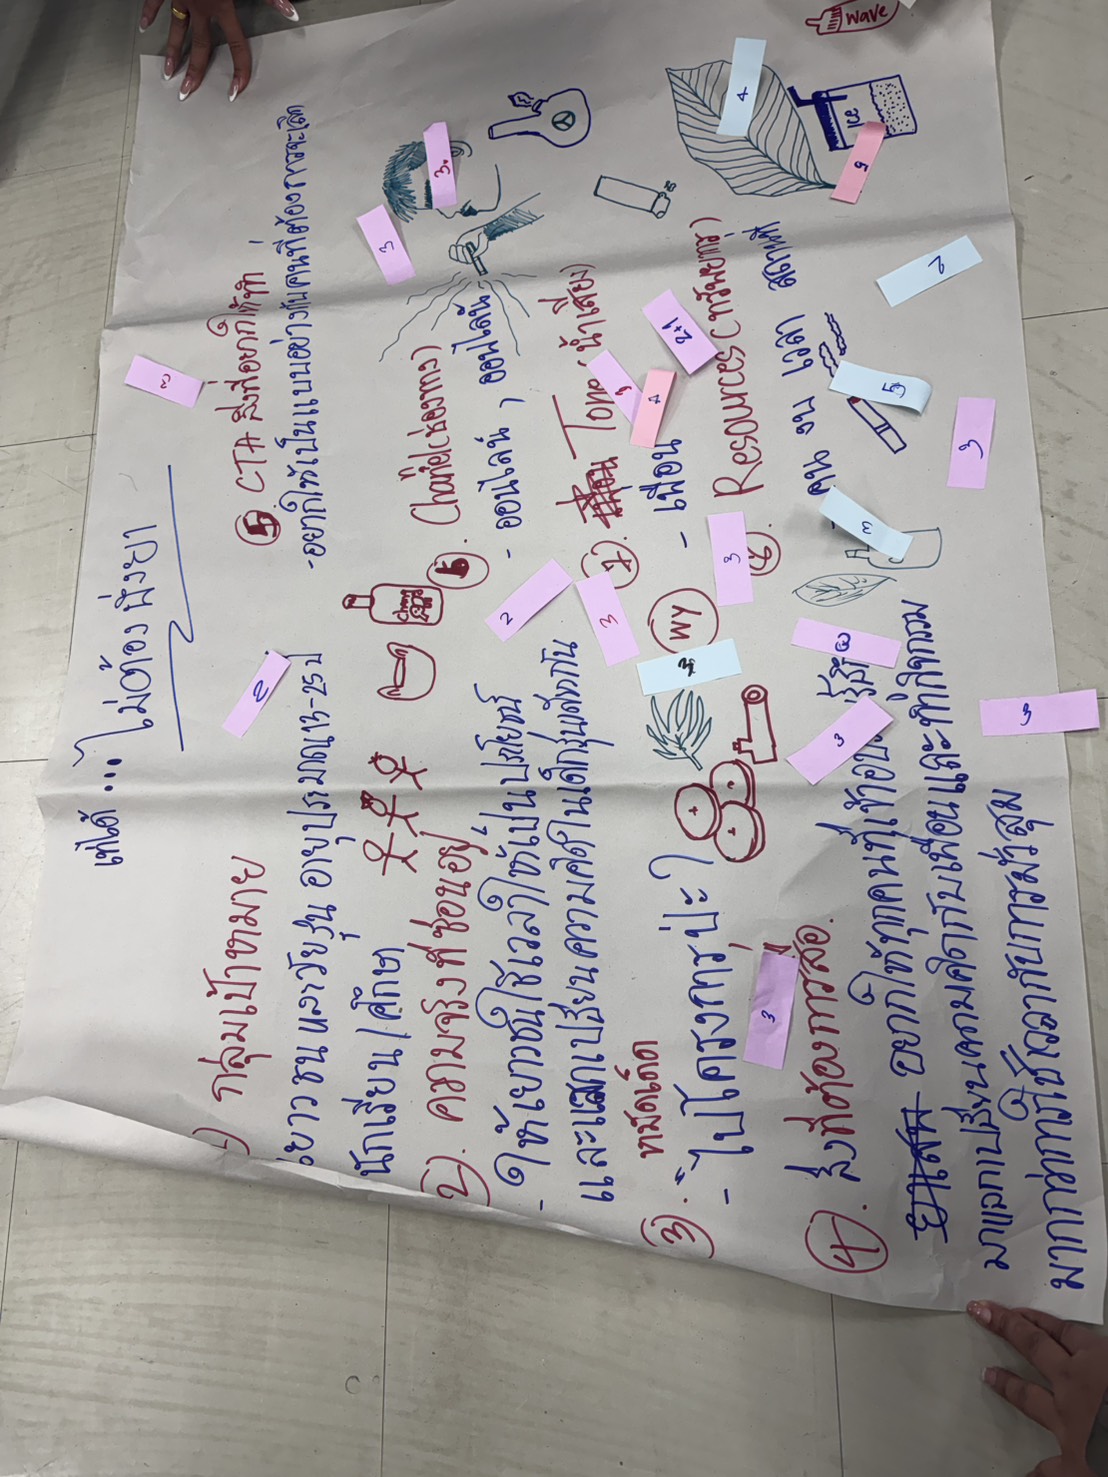 เท่ได้ ... ไม่ต้องพึ่งยา
1) กลุ่มเป้าหมาย
เยาวชน และวัยรุ่น อายุประมาณ 13-25 ป
นักเรียน/ศึกษา
2). ความจริงที่ซ่อนอยู่
- ให้เยาวชนใช้เวลาให้เป็นประโยชน์
และแลกเปลี่ยนความคิดในเด็กรุ่นเดียวกัน
3). หมัดเด็ด
- "ไปโครงการป่ะ?
4). สิ่งที่ต้องการสื่อ.
อยากให้ทุกคนที่เข้าอบ
มาแลกเปลี่ยนความคิดกับเพื่อนและทำกิจกรรม
มากกว่าการใช้เวลากับการมั่วสุม
5. CTA สิ่งที่อยากให้ทำ
- อยากให้เป็นแบบอย่างกับคนที่ต้องการจะเลิก
6. Chanel (ช่องทาง)
- ออนไลน์, ออนไลน์
7. Tone (น้ำเสียง)
- เพื่อน
8. Resources (ทรัพยากร)
- คน งบ เวลา สถานที่
WY
Ice
wave
3
3
3.
4
9
2
5
3
3
2+1
4
3
2
3
3
3
3
3